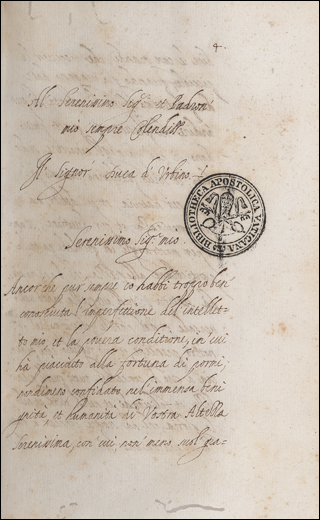 4.
Al Serenissimo Sig.r et Padron
mio sempre Colendiss.o
Il Signor Duca d'Urbino.
BIBLIOTHECA APOSTOLICA VATICANA
Serenissimo Sig.r mio
Ancor che pur io habbi troppo ben
conosciuta l'imperfettione del'intellet-
to mio, et la povera conditione, in cui
ha piacciuto alla fortuna di pormi,
nondimeno confidato nell'immensa beni
gnità, et humanità di Vostra Altezza
Serenissima, con cui, non meno nel gia-